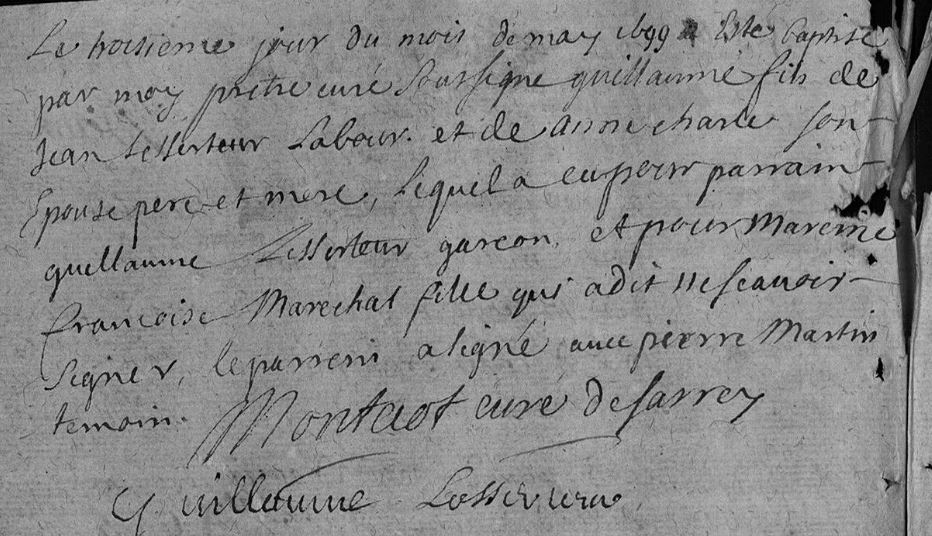 Le troisieme jour du mois de may 1699 a Esté baptisé
par moy prêtre curé soussigné guillaume fils de
Jean Lesserteur Labour. et de anne charle son
Epouse pere et mere, lequel a eu pour parrain
guillaume Lesserteur garcon, et pour Mareine
francoise Marechal fille qui a dit ne scavoir
signer, le parrein a signé avec pierre Martin
temoin. Montaiot curé de sarrey
Guillaume